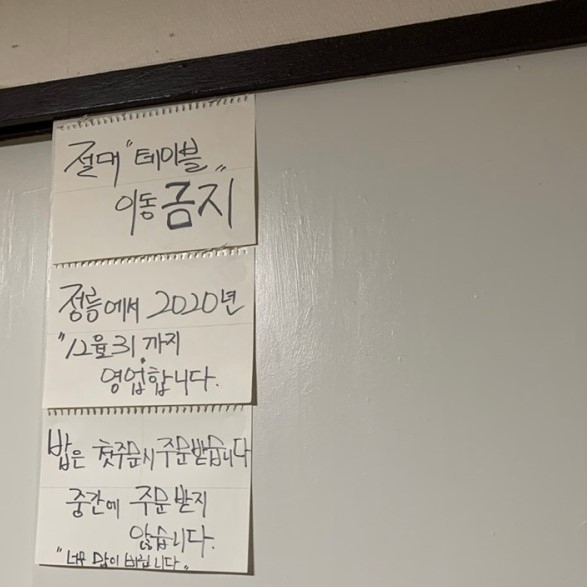 절대 "테이블"
이동 금지
정릉에서 2020년
"12월 31 까지
영업합니다.
밥은 첫주문시 주문받습니다
중간에 주문 받지
않습니다.
"너무 많이 바쁩니다"